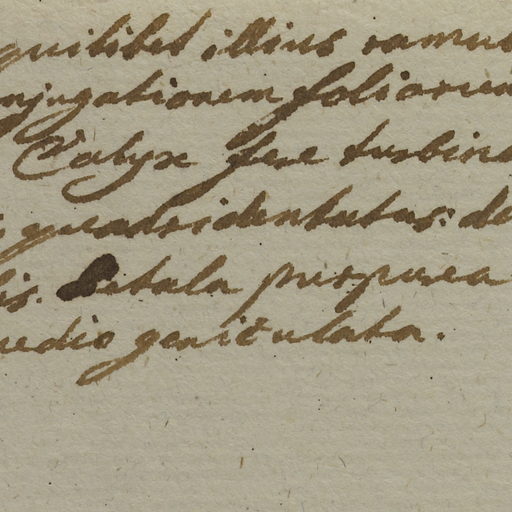 quilibet illius ramus
njugationem foliorum
Calyx fere turbina
quadridentatus: de
lis. Petala purpurea
medio geniculata.